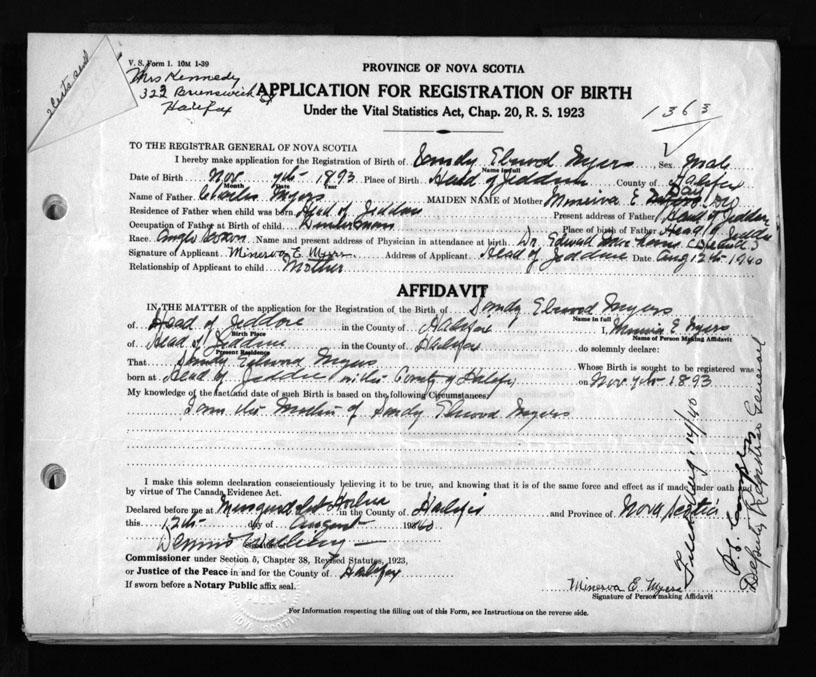 2 Certs sent
V. S. Form 1. 10M 1-39
Mrs Kennedy
322 Brunswick St
Halifax
PROVINCE OF NOVA SCOTIA
APPLICATION FOR REGISTRATION OF BIRTH
Under the Vital Statistics Act, Chap. 20, R. S. 1923
1363
TO THE REGISTRAR GENERAL OF NOVA SCOTIA
I hereby make application for the Registration of Birth of Sandy Elwood Myers Sex Male
Name in full
Date of Birth Nov 7th 1893 Place of Birth Head of Jeddore County of Halifax
Month Date Year
Name of Father Charles Myers MAIDEN NAME of Mother Minerva E Day
Residence of Father when child was born Head of Jeddore Present address of Father Head of Jeddore
Occupation of Father at Birth of Child Lumberman Place of birth of Father Head of Jeddore
Race. Anglo Saxon Name and present address of Physician in attendance at birth Dr. Edward
Signature of Applicant Minerva E. Myers Address of Applicant Head of Jeddore Date Aug 12th 1940
Relationship of Applicant to child Mother
AFFIDAVIT
IN THE MATTER of the application for the Registration of the Birth of Sandy Elwood Myers
Name in full
of Head of Jeddore in the County of Halifax I, Minerva E Myers
Birth Place Name of Person Making Affidavit
of Head of Jeddore in the County of Halifax do solemnly declare:
Present Residence
That Sandy Elwood Myers Whose Birth is sought to be registered was
born at Head of Jeddore in the County of Halifax on Nov 7th 1893
My knowledge of the fact and date of such Birth is based on the following Circumstances:
I am the Mother of Sandy Elwood Myers
I make this solemn declaration conscientiously believing it to be true, and knowing that it is of the same force and effect as if made under oath and
by virtue of The Canada Evidence Act.
Declared before me at Musquodoboit Harbour in the County of Halifax and Province of Nova Scotia
this 12th day of August 1940
Dennis
Commissioner under Section 5, Chapter 38, Revised Statutes, 1923,
or Justice of the Peace in and for the County of Halifax
If sworn before a Notary Public affix seal.
Minerva E. Myers
Signature of Person making Affidavit
For Information respecting the filling out of this Form, see Instructions on the reverse side.
NOVA SCOTIA
Filed Aug 14/40
Deputy Registrar General